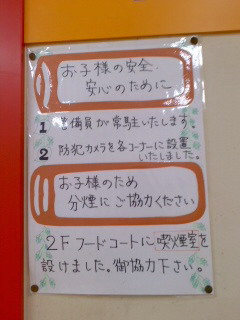 お子様の安全
安心のために
1 警備員が常駐いたします。
2 防犯カメラを各コーナーに設置
いたしました。
お子様のため
分煙にご協力ください
2Fフードコートに喫煙室を
設けました。御協力下さい。